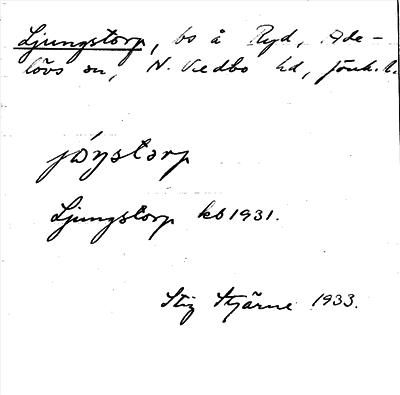 Ljungstorp, bs å Ryd, Ade-
lövs sn, N. Vedbo hd, Jönk. l.
Ljungstorp kb 1931.
Stig Stjärne 1933.